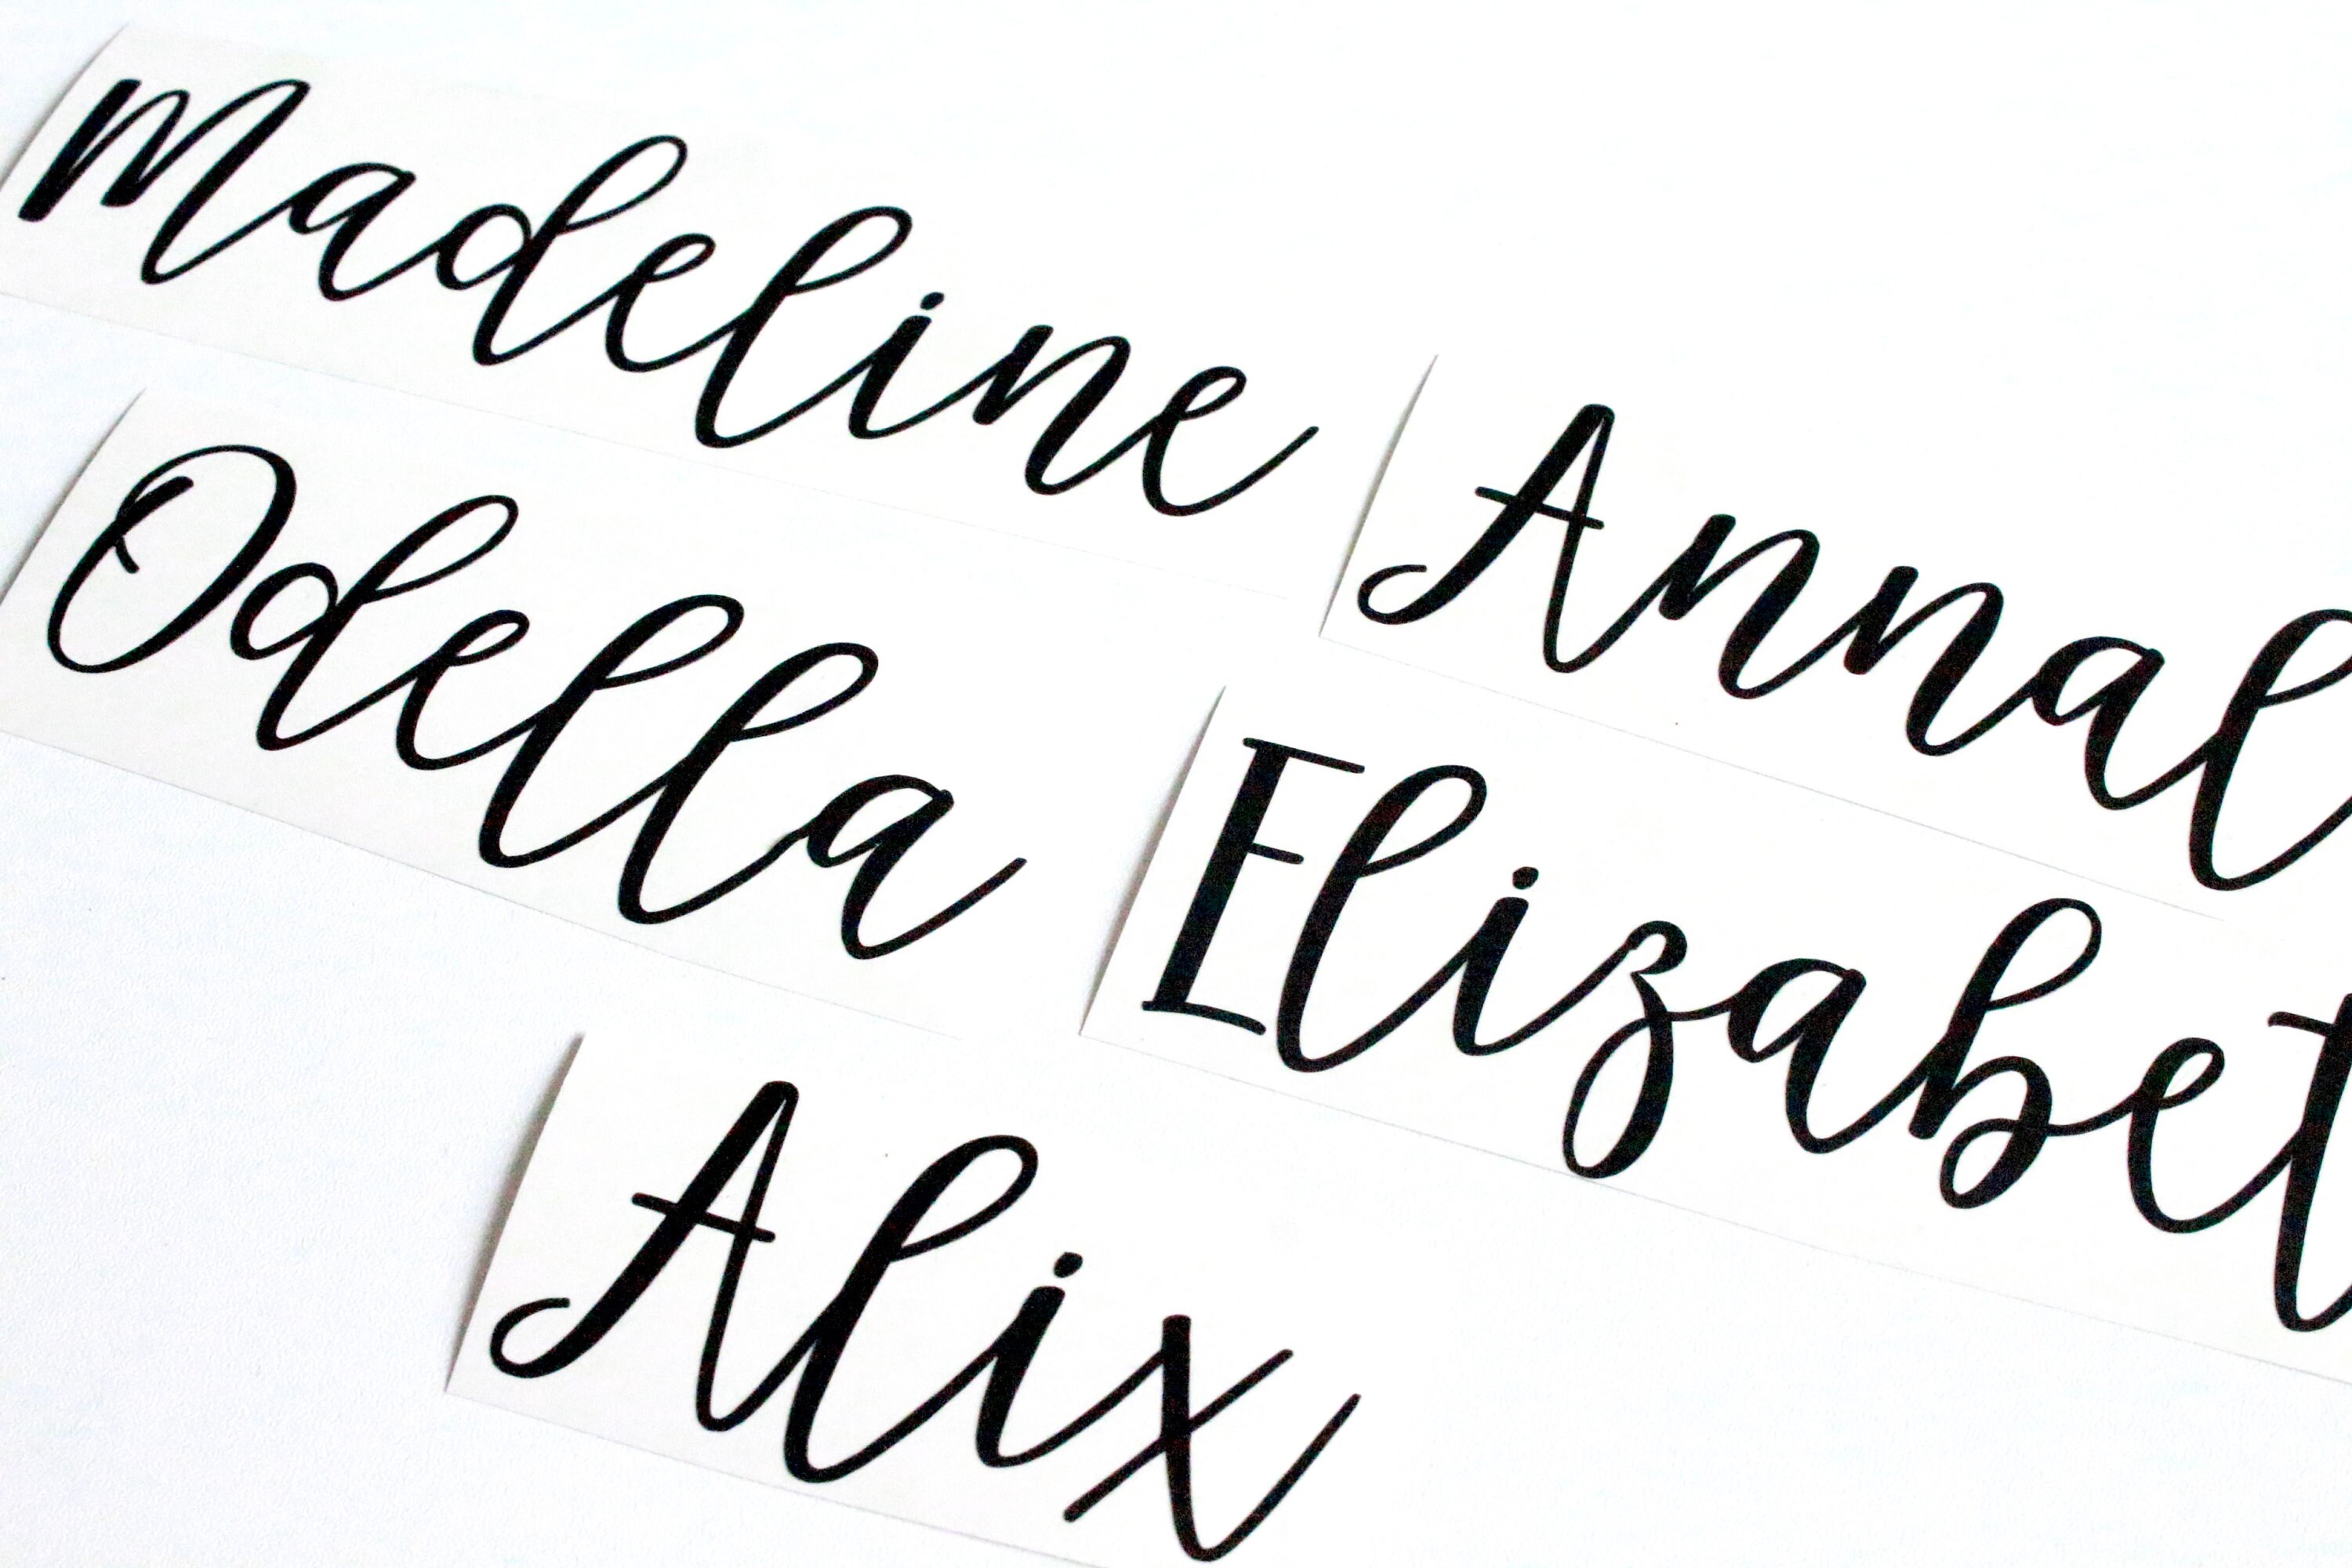 Madeline
Odella
Annal
Elizabet
Alix